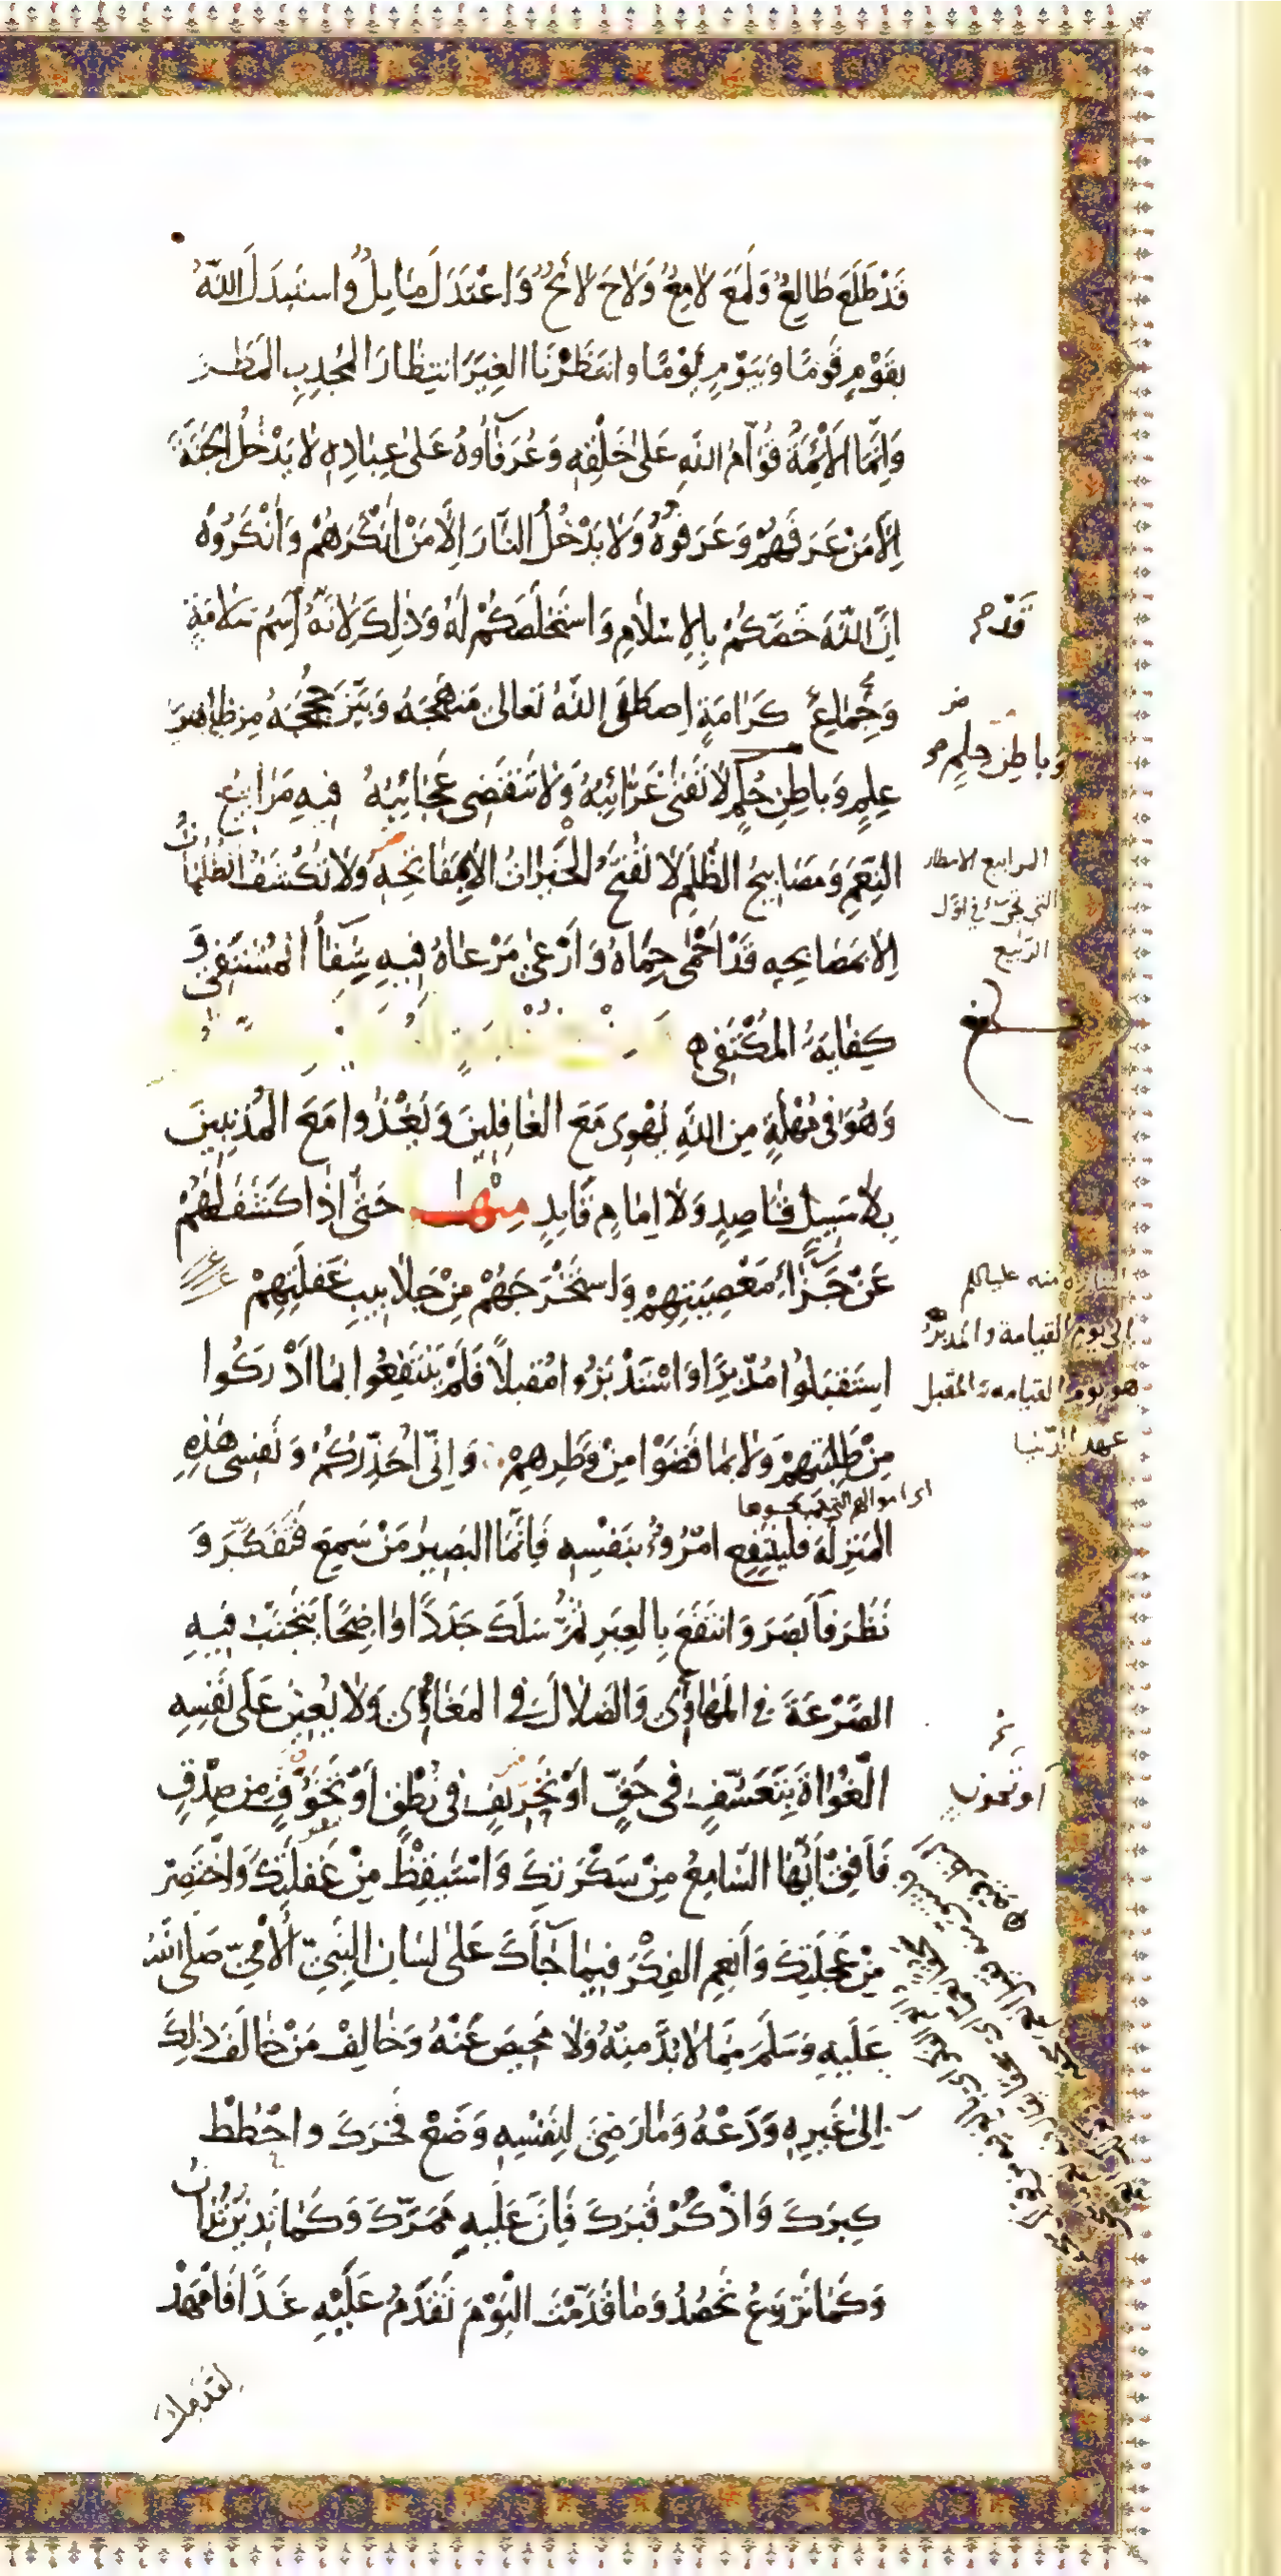 قَدْ طَلَعَ طَالِعٌ وَلَمَعَ لَامِعٌ وَلَاحَ لَائِحٌ وَاعْتَدَلَ مَائِلٌ وَاسْتَبْدَلَ اللهُ
بِقَوْمٍ قَوْمًا وَبِيَوْمٍ يَوْمًا وَانْتَظَرْنَا الغِيَرَ انْتِظَارَ المُجْدِبِ المَطَرَ
وَاِنَّمَا الاَئِمَّةُ قُوَّامُ اللهِ عَلَى خَلْقِهِ وَعُرَفَاؤُهُ عَلَى عِبَادِهِ لَا يَدْخُلُ الجَنَّةَ
اِلَّا مَنْ عَرَفَهُمْ وَعَرَفُوهُ وَلَا يَدْخُلُ النَّارَ اِلَّا مَنْ اَنْكَرَهُمْ وَاَنْكَرُوهُ
اِنَّ اللهَ خَصَّكُمْ بِالاِسْلَامِ وَاسْتَخْلَصَكُمْ لَهُ وَذٰلِكَ لِاَنَّهُ اسْمُ سَلَامَةٍ
قَدْ
وَجِمَاعُ كَرَامَةٍ اِصْطَفَى اللهُ تَعَالَى مَنْهَجَهُ وَبَيَّنَ حُجَجَهُ مِنْ ظَاهِرِ
وباطِنِ حِلْمٍ
عِلْمٍ وَبَاطِنِ حُكْمٍ لَا تَفْنَى غَرَائِبُهُ وَلَا تَنْقَضِي عَجَائِبُهُ فِيهِ مَرَابِيعُ
النِّعَمِ وَمَصَابِيحُ الظُّلَمِ لَا تُفْتَحُ الخَيْرَاتُ اِلَّا بِمَفَاتِحِهِ وَلَا تُكْشَفُ الظُّلُمَاتُ
المرابيع الامطار
التي تجيء في اول
الربيع
اِلَّا بِمَصَابِحِهِ قَدْ اَحْمَى حِمَاهُ وَاَرْعَى مَرْعَاهُ فِيهِ شِفَاءُ المُشْتَفِي وَ
كِفَايَةُ المُكْتَفِي ه
وَهُوَ فِي مُهْلَةٍ مِنَ اللهِ يَهْوِي مَعَ الغَافِلِينَ وَيَغْدُوا مَعَ المُذْنِبِينَ
بِلَا سَبِيلٍ قَاصِدٍ وَلَا اِمَامٍ قَايِدٍ مِنْهَا حَتَّى اِذَا كَشَفَ لَهُمْ
عَنْ جَزَاءِ مَعْصِيَتِهِمْ وَاسْتَخْرَجَهُمْ مِنْ جَلَابِيبِ غَفْلَتِهِمْ
الى يوم القيامة والمدبر
هو يوم القيامه والمقبل
عهد الدنيا
اسْتَقْبَلُوا مُدْبِرًا وَاسْتَدْبَرُوا مُقْبِلًا فَلَمْ يَنْتَفِعُوا بِمَا اَدْرَكُوا
مِنْ طَلِبَتِهِمْ وَلَا بِمَا قَضَوْا مِنْ وَطَرِهِمْ وَاِنِّي اُحَذِّرُكُمْ وَنَفْسِي هٰذِهِ
المَنْزِلَةَ فَلْيَنْتَفِعِ امْرُؤٌ بِنَفْسِهِ فَاِنَّمَا البَصِيرُ مَنْ سَمِعَ فَتَفَكَّرَ وَ
نَظَرَ فَاَبْصَرَ وَانْتَفَعَ بِالعِبَرِ ثُمَّ سَلَكَ جَدَدًا وَاضِحًا يَتَجَنَّبُ فِيهِ
الصَّرْعَةَ فِي المَهَاوِي وَالضَّلَالَ فِي المَغَاوِي وَلَا يُعِينُ عَلَى نَفْسِهِ
الغُوَاةَ بِتَعَسُّفٍ فِي حَقٍّ اَوْ تَحْرِيفٍ فِي نُطْقٍ اَوْ تَخَوُّفٍ مِنْ صِدْقٍ
فَاَفِقْ اَيُّهَا السَّامِعُ مِنْ سَكْرَتِكَ وَاسْتَيْقِظْ مِنْ غَفْلَتِكَ وَاخْتَصِرْ
مِنْ عَجَلَتِكَ وَاَنْعِمِ الفِكْرَ فِيمَا جَاءَكَ عَلَى لِسَانِ النَّبِيِّ الاُمِّيِّ صَلَّى اللهُ
عَلَيْهِ وَسَلَّمَ مِمَّا لَا بُدَّ مِنْهُ وَلَا مَحِيصَ عَنْهُ وَخَالِفْ مَنْ خَالَفَ ذٰلِكَ
اِلَى غَيْرِهِ وَدَعْهُ وَمَا رَضِيَ لِنَفْسِهِ وَضَعْ فَخْرَكَ وَاحْطُطْ
كِبْرَكَ وَاذْكُرْ قَبْرَكَ فَاِنَّ عَلَيْهِ مَمَرَّكَ وَكَمَا تَدِينُ تُدَانُ
وَكَمَا تَزْرَعُ تَحْصُدُ وَمَا قَدَّمْتَ اليَوْمَ تَقْدَمُ عَلَيْهِ غَدًا فَامْهَدْ
لقدمك